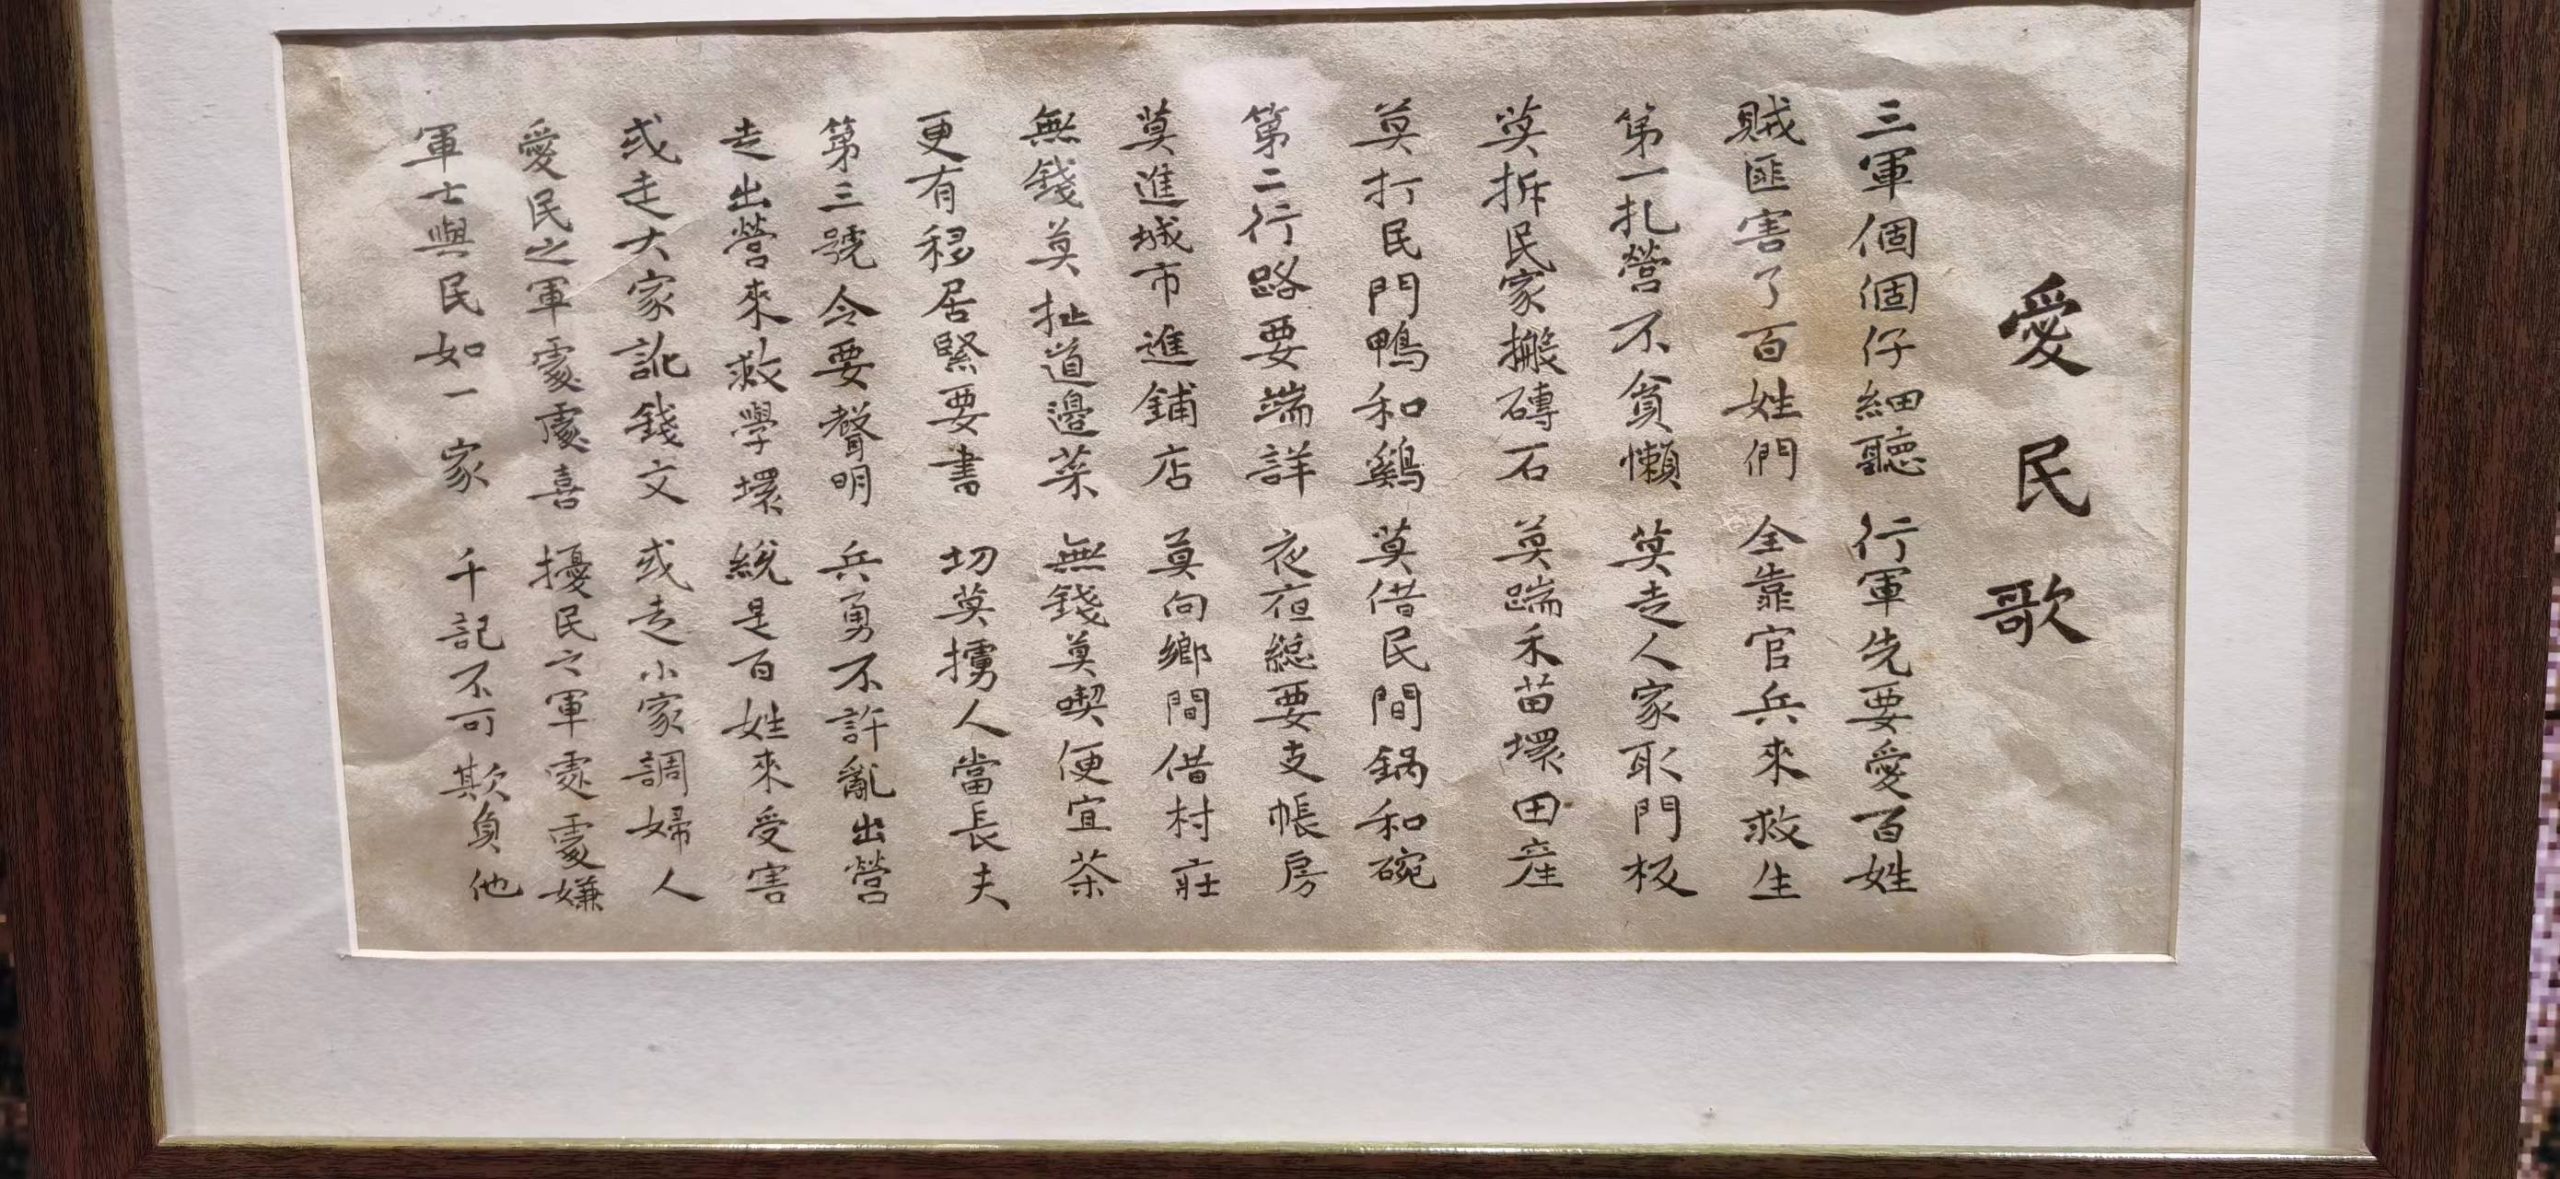 愛民歌
三軍個個仔細聽 行軍先要愛百姓
賊匪害了百姓們 全靠官兵來救生
第一扎營不貧懶 莫走人家取門板
莫拆民家搬磚石 莫踹禾苗壞田産
莫打民門鴨和鷄 莫借民間鍋和碗
第二行路要端詳 夜夜總要支帳房
莫進城市進鋪店 莫向鄉間借村莊
無錢莫扯道邊菜 無錢莫喫便宜茶
更有移居緊要書 切莫擄人當長夫
第三號令要聲明 兵勇不許亂出營
走出營來救學壞 總是百姓來受害
或走大家訛錢文 或走小家調婦人
愛民之軍處處喜 擾民之軍處處嫌
軍士與民如一家 千記不可欺負他